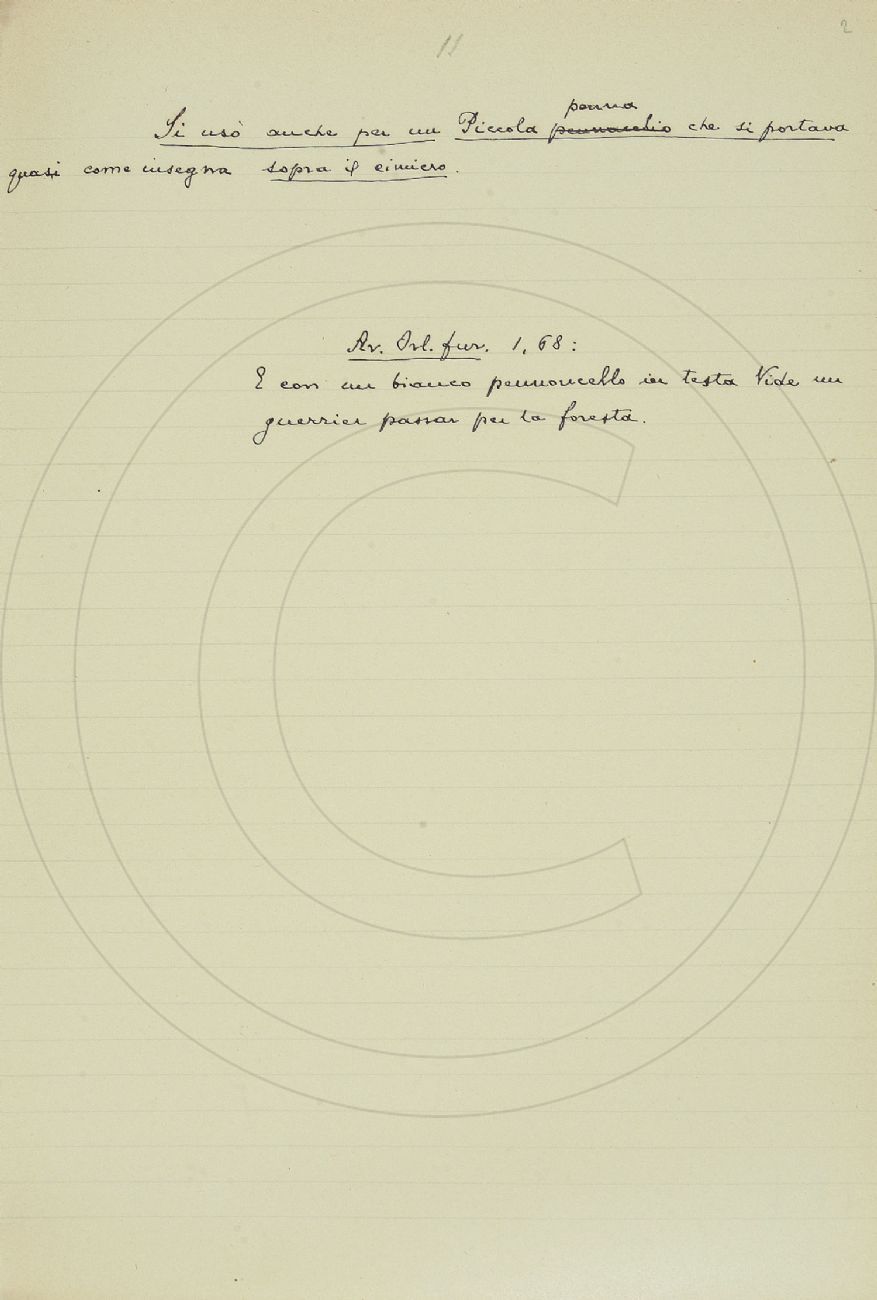 11
2
Si usò anche per un Piccola pennacchio penna che si portava
quasi come insegna sopra il cimiero.
Ar. Orl. fur. 1, 68:
E con un bianco pennoncello in testa Vide un
guerrier passar per la foresta.